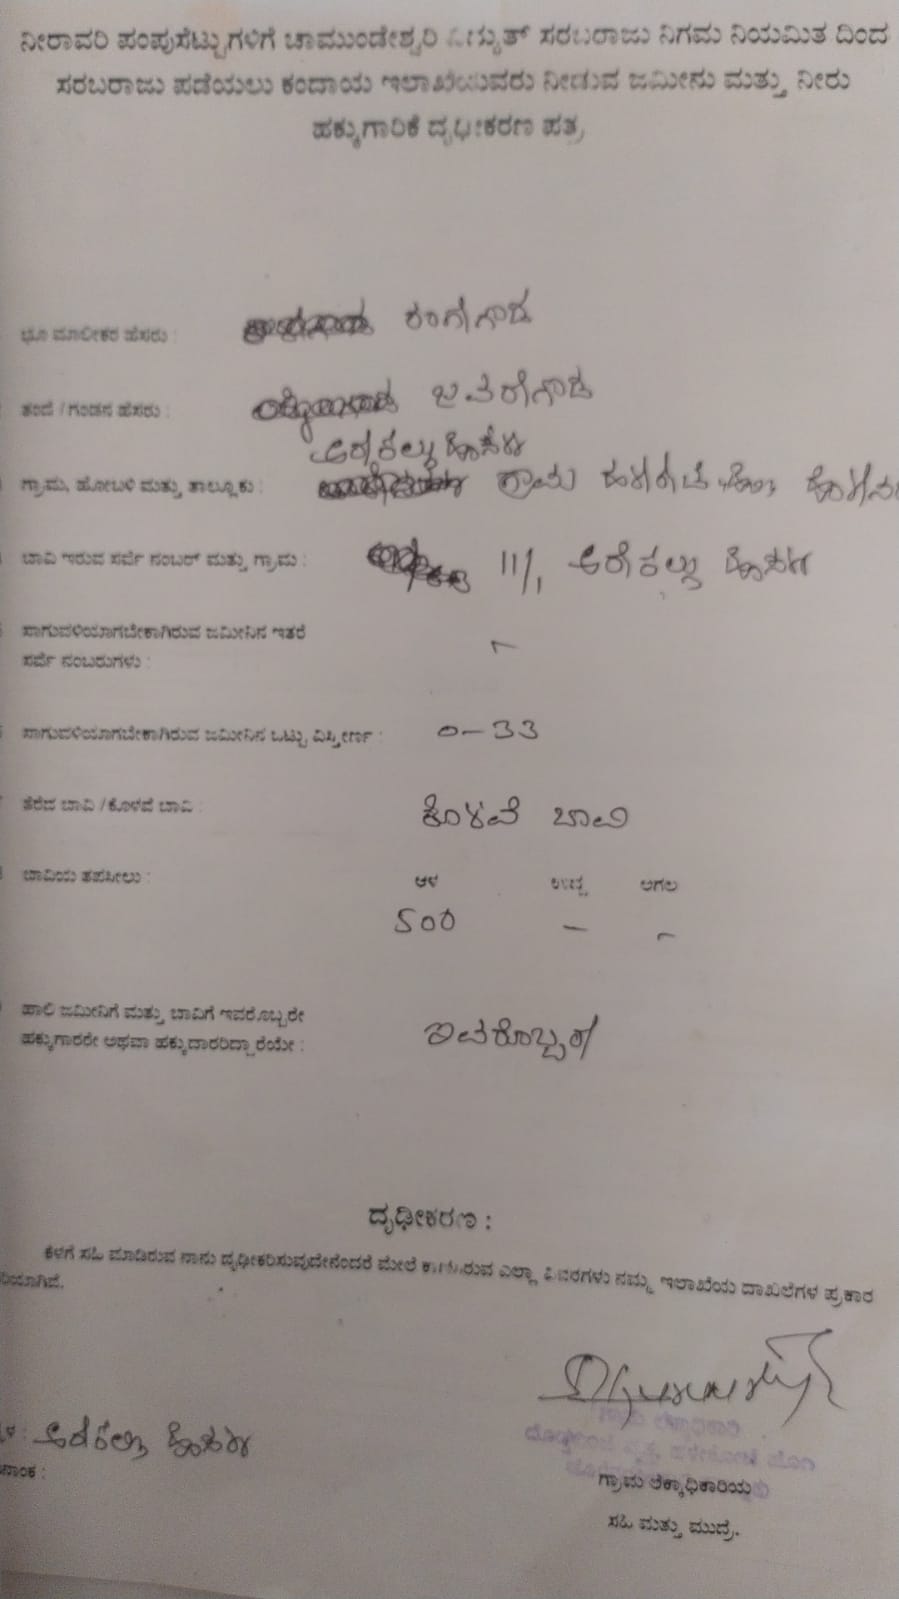 ನೀರಾವರಿ ಪಂಪುಸೆಟ್ಟುಗಳಿಗೆ ಚಾಮುಂಡೇಶ್ವರಿ ವಿದ್ಯುತ್ ಸರಬರಾಜು ನಿಗಮ ನಿಯಮಿತ ದಿಂದ
ಸರಬರಾಜು ಪಡೆಯಲು ಕಂದಾಯ ಇಲಾಖೆಯುವರು ನೀಡುವ ಜಮೀನು ಮತ್ತು ನೀರು
ಹಕ್ಕುಗಾರಿಕೆ ದೃಢೀಕರಣ ಪತ್ರ
ಭೂ ಮಾಲೀಕರ ಹೆಸರು : ರಂಗೇಗೌಡ
ತಂದೆ / ಗಂಡನ ಹೆಸರು : ಜವರೇಗೌಡ
ಅರೆಕಲ್ಲು ಹೊಸಳ್ಳಿ
ಗ್ರಾಮ, ಹೋಬಳಿ ಮತ್ತು ತಾಲ್ಲೂಕು : ಗ್ರಾಮ
ಬಾವಿ ಇರುವ ಸರ್ವೆ ನಂಬರ್ ಮತ್ತು ಗ್ರಾಮ : 11/1 ಅರೆಕಲ್ಲು ಹೊಸಳ್ಳಿ
ಸಾಗುವಳಿಯಾಗಬೇಕಾಗಿರುವ ಜಮೀನಿನ ಇತರೆ
ಸರ್ವೆ ನಂಬರುಗಳು : –
ಸಾಗುವಳಿಯಾಗಬೇಕಾಗಿರುವ ಜಮೀನಿನ ಒಟ್ಟು ವಿಸ್ತೀರ್ಣ : 0-33
ತೆರೆದ ಬಾವಿ / ಕೊಳವೆ ಬಾವಿ : ಕೊಳವೆ ಬಾವಿ
ಬಾವಿಯ ತಪಸೀಲು : ಆಳ ಉದ್ದ ಅಗಲ
500 – –
ಹಾಲಿ ಜಮೀನಿಗೆ ಮತ್ತು ಬಾವಿಗೆ ಇವರೊಬ್ಬರೇ
ಹಕ್ಕುಗಾರರೇ ಅಥವಾ ಹಕ್ಕುದಾರರಿದ್ದಾರೆಯೇ : ಇವರೊಬ್ಬರೇ
ದೃಢೀಕರಣ :
ಕೆಳಗೆ ಸಹಿ ಮಾಡಿರುವ ನಾನು ದೃಢೀಕರಿಸುವುದೇನೆಂದರೆ ಮೇಲೆ ಕಾಣಿಸಿರುವ ಎಲ್ಲಾ ವಿವರಗಳು ನಮ್ಮ ಇಲಾಖೆಯ ದಾಖಲೆಗಳ ಪ್ರಕಾರ
ರಿಯಾಗಿವೆ.
ಗ್ರಾಮ ಲೆಕ್ಕಾಧಿಕಾರಿ
ಳ : ಅರೆಕಲ್ಲು ಹೊಸಳ್ಳಿ
ನಾಂಕ :
ಗ್ರಾಮ ಲೆಕ್ಕಾಧಿಕಾರಿಯ
ಸಹಿ ಮತ್ತು ಮುದ್ರೆ.